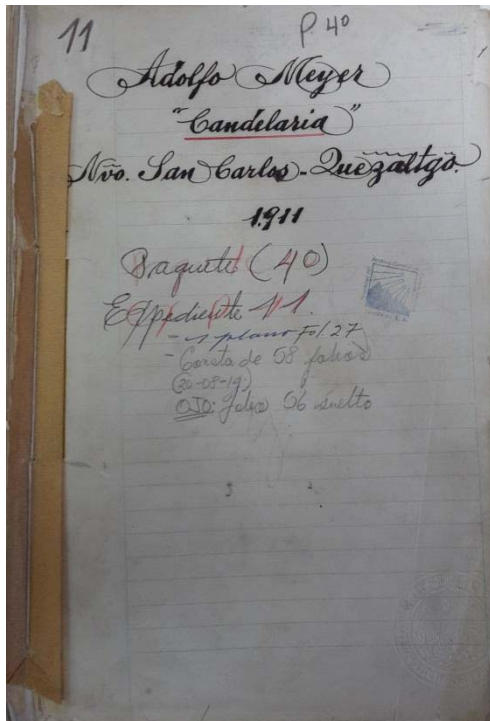 11
P. 40
Adolfo Meyer
"Candelaria"
Nvo. San Carlos - Quezaltgo.
1.911
Paquete (40)
Expediente 11.
- 1 plano Fol. 27
- Consta de 58 folios
(20-08-19)
OJO: folio 06 suelto